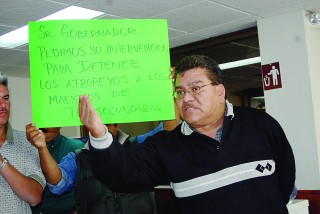 SR. GOBERNADOR
PEDIMOS SU INTERVENCION
PARA DETENER
LOS ATROPEYOS A LOS
MAESTROS DE
TELESECUNDARIA